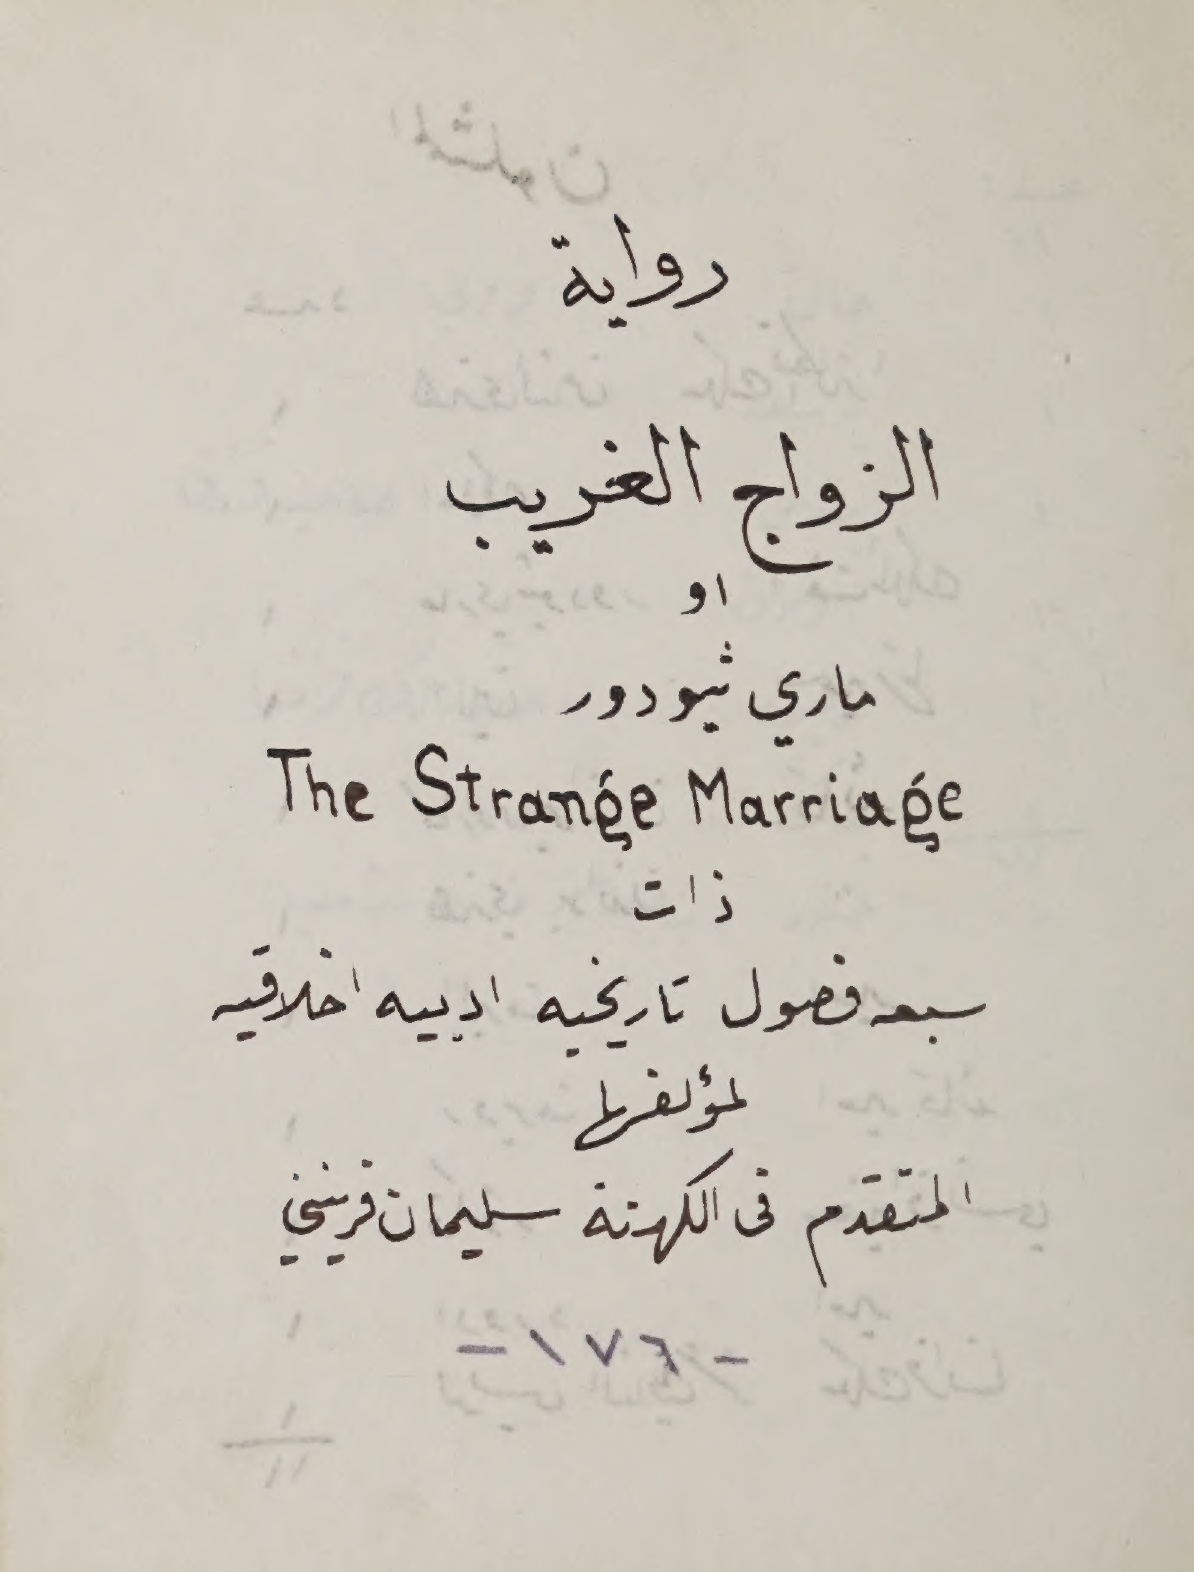 رواية
الزواج الغريب
او
ماري ثيودور
The Strange Marriage
ذات
سبعه فصول تاريخيه ادبيه اخلاقيه
لمؤلفها
المتقدم فى الكهنة سليمان فرينيني